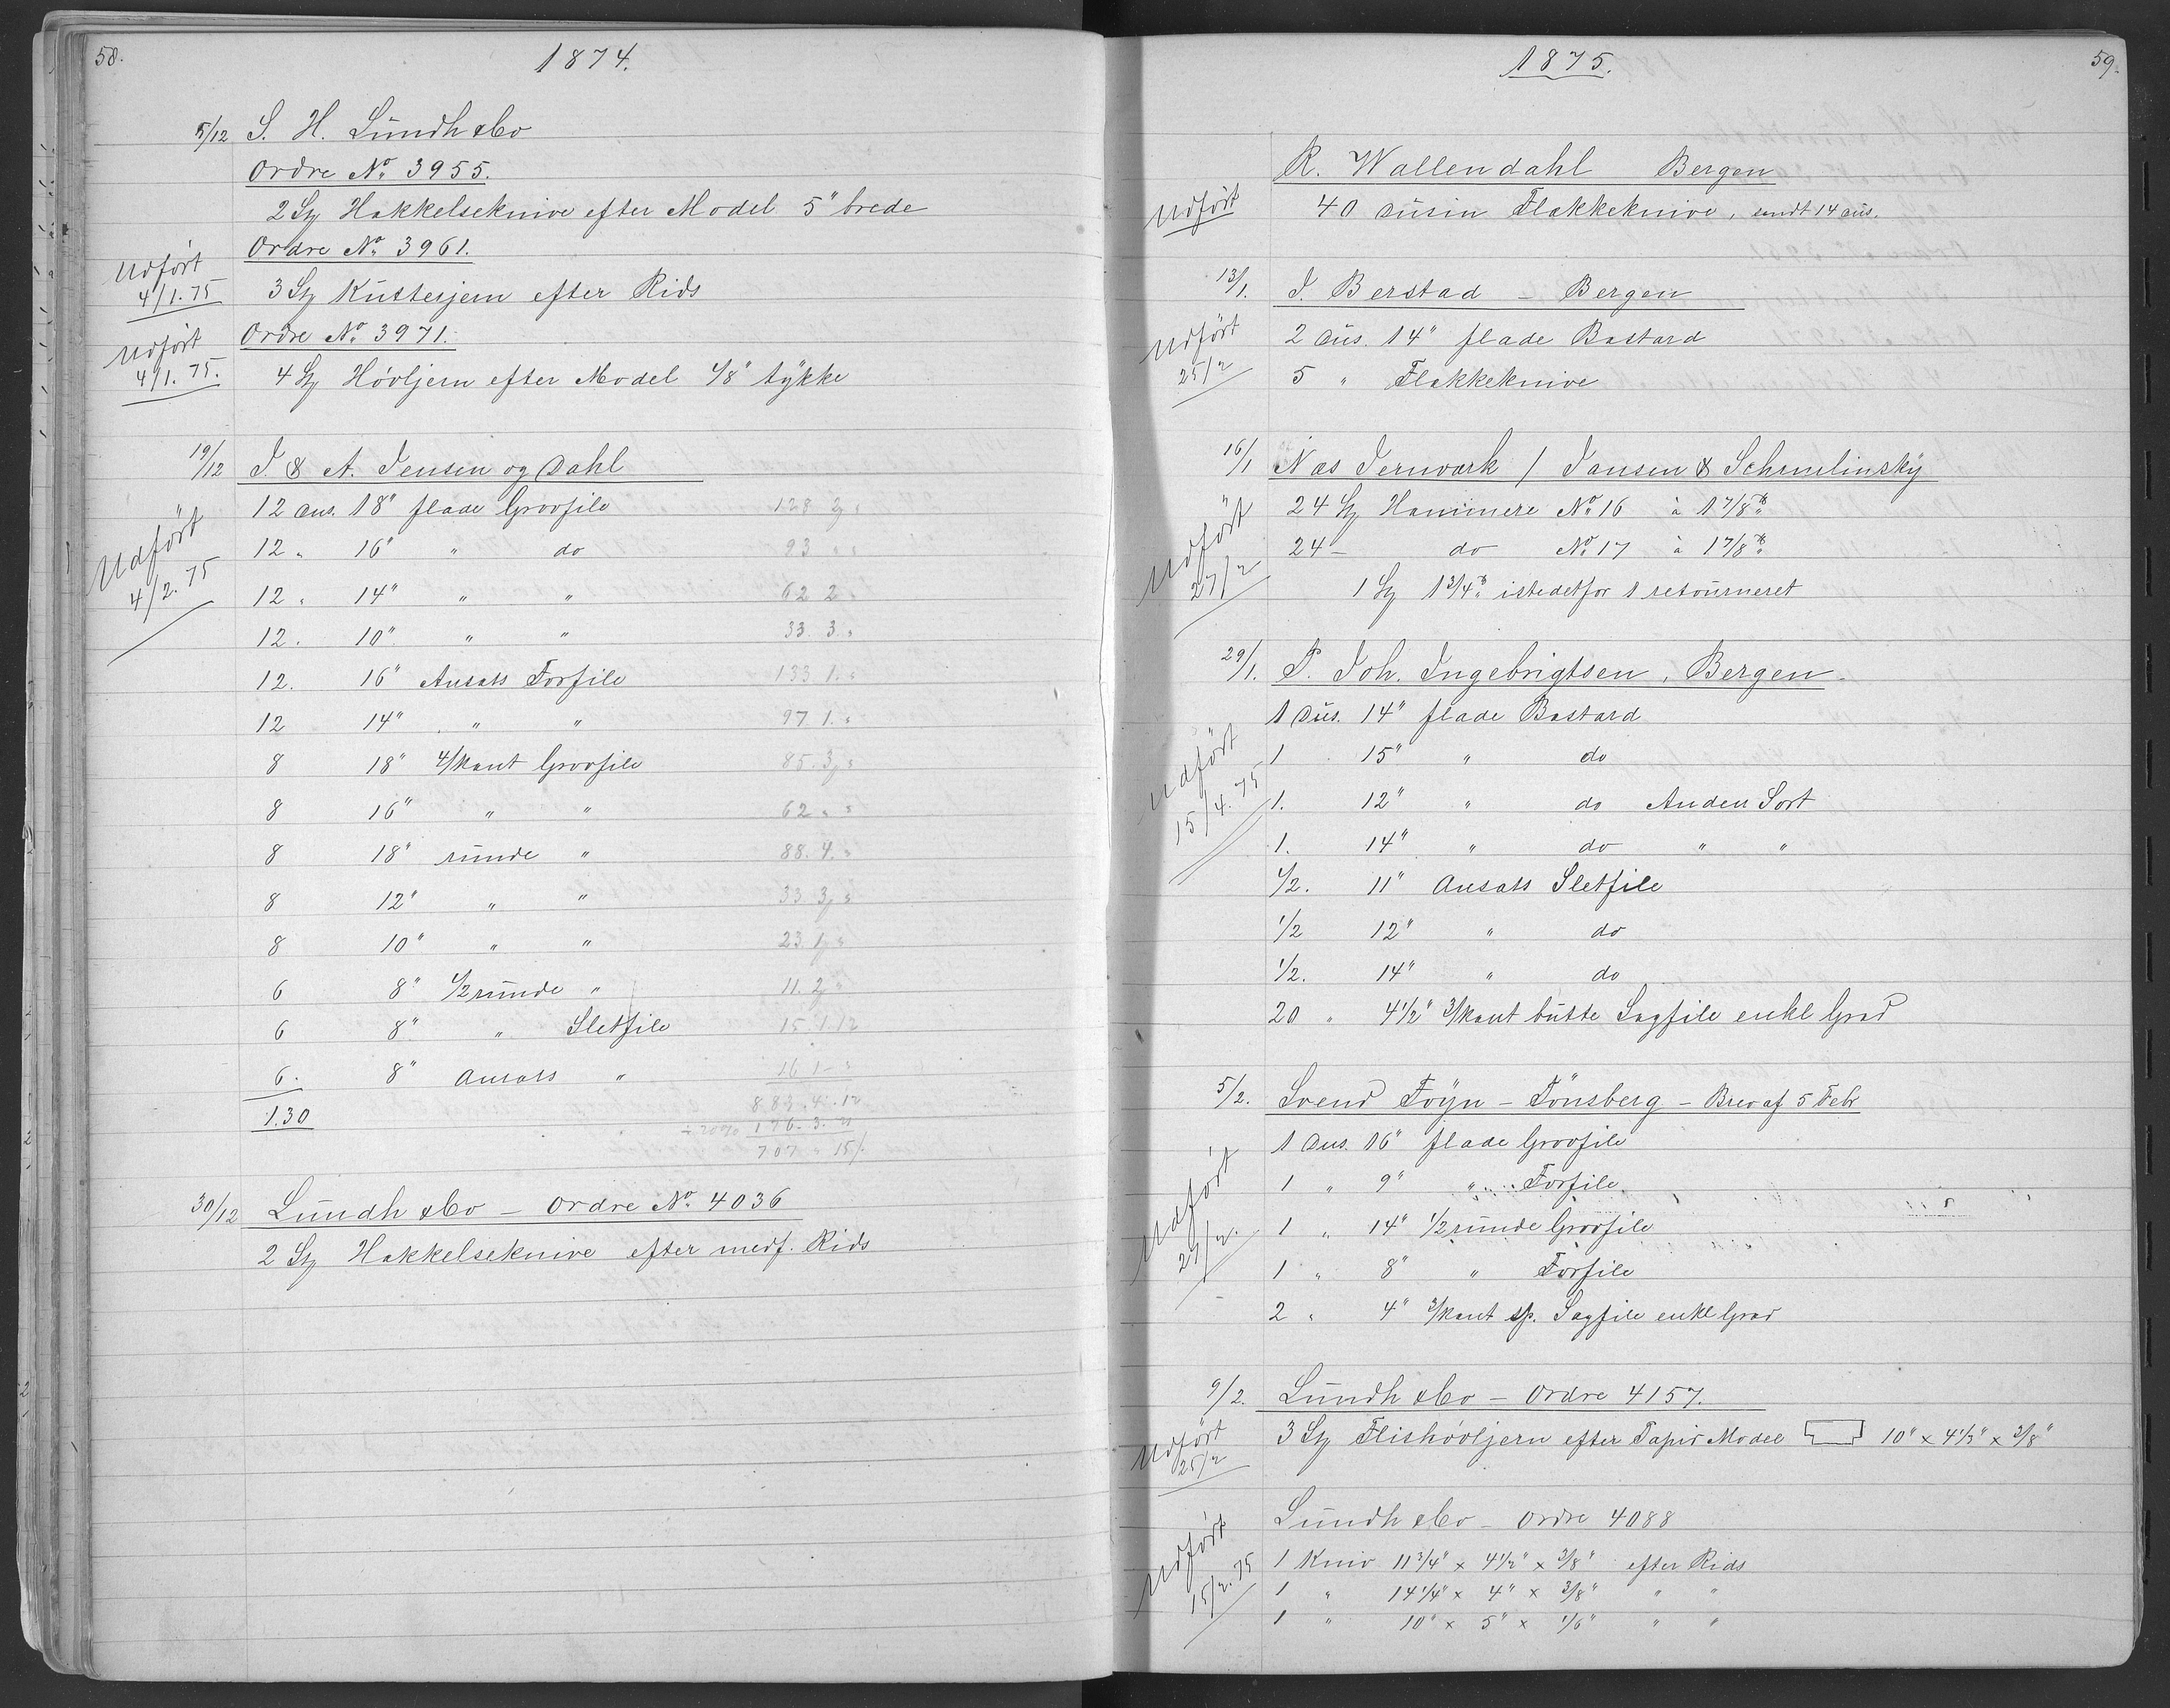 58.
1874.
5/12 S. H. Lündh & Co
Ordre No 3955.
2 Stz Hakkelseknive efter Model 5" brede
Ordre No 3961.
Udført 4/1.75
3 Stz Kütterjern efter Rids
Ordre No 3971.
Udført 4/1.75.
4 Stz Høvljern efter Model 1/8" tykke
19/12 J. & A. Jensen og Dahl
Udført 4/2.75
12 Dus. 18" flade Grovfile 128 3 "
12 " 16" " do 93 " "
12 " 14" " " 62 2 "
12. 10" " " 33. 3. "
12. 16" Ansats Forfile 133 1. "
12 14" " " 97 1. "
8 18" 4/kant Grovfile 85. 3 "
8 16" " " 62 " "
8 18" runde " 88. 4. "
8 12" " " 33 3 "
8 10" " " 23 1 "
6 8" 1/2 runde " 11. 2 "
6 8" " Sletfile 15. 1. 12
6. 8" Ansats " 16 1 - "
130 883. 4. 12
÷ 20% 176. 3. 21
707 " 15/.
30/12 Lündh & Co – Ordre No 4036
2 Stz Hakkelseknive efter medf. Rids
1875.
59.
R. Wallendahl Bergen
Udført
40 Düsin Flækkeknive, sendt 14 düs.
13/1. J. Berstad – Bergen
Udført 25/2
2 Düs. 14" flade Bastard
5 " Flækkeknive
16/1 Næs Jernværk / Jansen & Schmelinsky
Udført 27/2
24 Stz Hammere No 16 à 1 7/8 ℔
24 – do No 17 à 1 7/8 ℔
1 Stz 1 3/4 ℔ istedetfor 1 retourneret
29/1. P. Joh. Ingebrigtsen, Bergen.
Udført 15/4.75
1 Düs. 14" flade Bastard
1 15" " do
1. 12" " do Anden Sort
1. 14" " do " "
1/2. 11" Ansats Sletfile
1/2 12" " do
1/2. 14" " do
20 " 4 1/2" 3/kant butte Sagfile enkl Grad
5/2. Svend Foyn – Tönsberg – Brev af 5 Febr
Udført 27/2.
1 Dus. 16" flade Grovfile
1 " 9" " Forfile
1 " 14" 1/2 runde Grovfile
1 " 8" " Forfile
2 " 4" 3/kant sp. Sagfile enkl Grad
9/2. Lündh & Co – Ordre 4157.
Udført 25/2
3 Stz Flishøvljern efter Papir Model 10" x 4 1/2" x 3/8"
Lündh & Co – Ordre 4088
Udført 15/2.75
1 Kniv 11 3/4" x 4 1/2" x 3/8" efter Rids
1 " 14 1/4" x 4" x 3/8" " "
1 " 10" x 5" x 1/6" " "